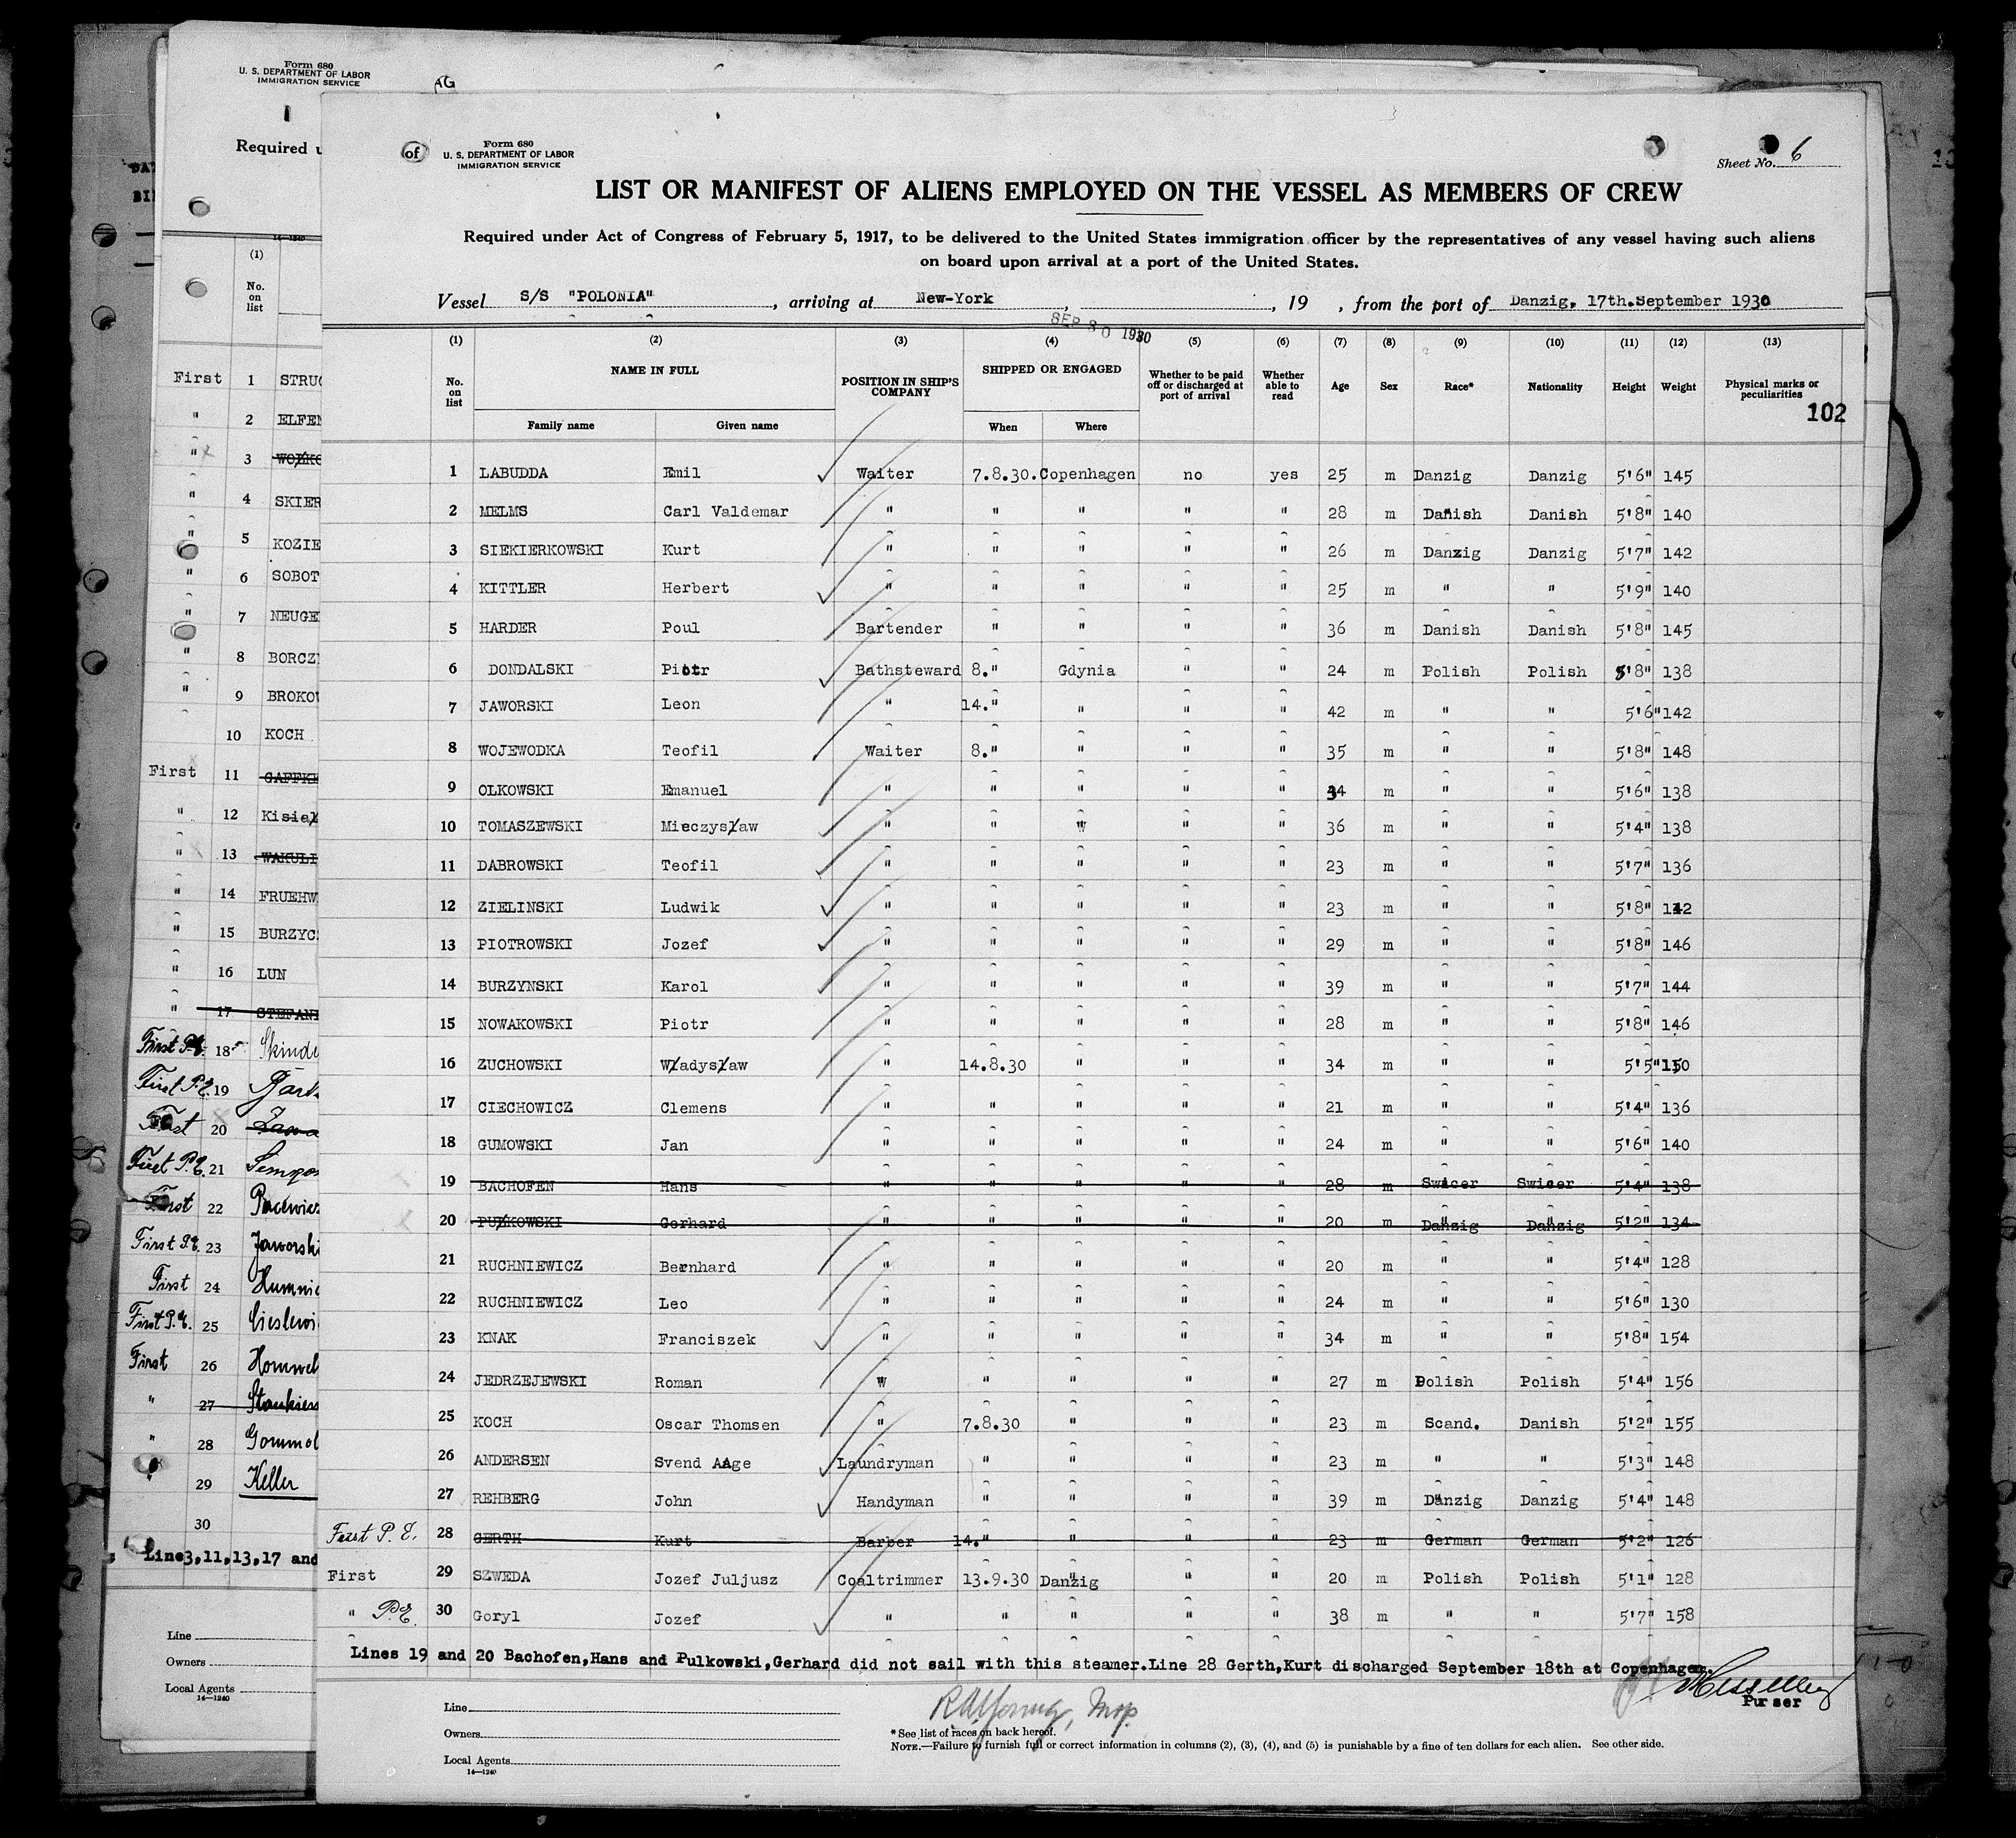 Form 680
U. S. DEPARTMENT OF LABOR
IMMIGRATION SERVICE
AG
Required u
(1)
No. on list
First 1 STRUG
" 2 ELFEN
" 3 WOŁKO
" 4 SKIER
" 5 KOZIE
" 6 SOBOT
" 7 NEUGE
" 8 BORCZ
" 9 BROKO
10 KOCH
First 11 GAFFKE
" 12 Kisiel
" 13 WAKULI
" 14 FRUEHW
" 15 BURZYC
" 16 LUN
" 17 STEFANI
First P.E. 18 Skinde
First P.E. 19
First 20
First P.E. 21
First 22
First P.E. 23 Jaworski
First 24 Humnic
First P.E. 25 Cieslewi
First 26
" 27
" 28 Gommol
" 29 Keller
30
Line 3,11,13,17 and
Line
Owners
Local Agents
14—1240
of
Form 680
U. S. DEPARTMENT OF LABOR
IMMIGRATION SERVICE
Sheet No. 6
LIST OR MANIFEST OF ALIENS EMPLOYED ON THE VESSEL AS MEMBERS OF CREW
Required under Act of Congress of February 5, 1917, to be delivered to the United States immigration officer by the representatives of any vessel having such aliens
on board upon arrival at a port of the United States.
Vessel S/S "POLONIA", arriving at New-York, , 19 , from the port of Danzig, 17th.September 1930
SEP 30 1930
(1) (2) (3) (4) (5) (6) (7) (8) (9) (10) (11) (12) (13)
No. on list NAME IN FULL POSITION IN SHIP'S COMPANY SHIPPED OR ENGAGED Whether to be paid off or discharged at port of arrival Whether able to read Age Sex Race* Nationality Height Weight Physical marks or peculiarities
102
Family name Given name When Where
1 LABUDDA Emil Waiter 7.8.30. Copenhagen no yes 25 m Danzig Danzig 5'6" 145
2 MELMS Carl Valdemar " " " " " 28 m Danish Danish 5'8" 140
3 SIEKIERKOWSKI Kurt " " " " " 26 m Danzig Danzig 5'7" 142
4 KITTLER Herbert " " " " " 25 m " " 5'9" 140
5 HARDER Poul Bartender " " " " 36 m Danish Danish 5'8" 145
6 DONDALSKI Piotr Bathsteward 8." Gdynia " " 24 m Polish Polish 5'8" 138
7 JAWORSKI Leon " 14." " " " 42 m " " 5'6" 142
8 WOJEWODKA Teofil Waiter 8." " " " 35 m " " 5'8" 148
9 OLKOWSKI Emanuel " " " " " 34 m " " 5'6" 138
10 TOMASZEWSKI Mieczysław " " " " " 36 m " " 5'4" 138
11 DABROWSKI Teofil " " " " " 23 m " " 5'7" 136
12 ZIELINSKI Ludwik " " " " " 23 m " " 5'8" 142
13 PIOTROWSKI Jozef " " " " " 29 m " " 5'8" 146
14 BURZYNSKI Karol " " " " " 39 m " " 5'7" 144
15 NOWAKOWSKI Piotr " " " " " 28 m " " 5'8" 146
16 ZUCHOWSKI Władysław " 14.8.30 " " " 34 m " " 5'5" 150
17 CIECHOWICZ Clemens " " " " " 21 m " " 5'4" 136
18 GUMOWSKI Jan " " " " " 24 m " " 5'6" 140
19 BACHOFEN Hans " " " " " 28 m Swicer Swicer 5'4" 138
20 PUŁKOWSKI Gerhard " " " " " 20 m Danzig Danzig 5'2" 134
21 RUCHNIEWICZ Bernhard " " " " " 20 m " " 5'4" 128
22 RUCHNIEWICZ Leo " " " " " 24 m " " 5'6" 130
23 KNAK Franciszek " " " " " 34 m " " 5'8" 154
24 JEDRZEJEWSKI Roman " " " " " 27 m Polish Polish 5'4" 156
25 KOCH Oscar Thomsen " 7.8.30 " " " 23 m Scand. Danish 5'2" 155
26 ANDERSEN Svend Aage Laundryman " " " " 23 m " " 5'3" 148
27 REHBERG John Handyman " " " " 39 m Danzig Danzig 5'4" 148
First P. E. 28 GERTH Kurt Barber 14." " " " 23 m German German 5'2" 126
First 29 SZWEDA Jozef Juljusz Coaltrimmer 13.9.30 Danzig " " 20 m Polish Polish 5'1" 128
" P.E. 30 Goryl Jozef " " " " " 38 m " " 5'7" 158
Lines 19 and 20 Bachofen,Hans and Pulkowski,Gerhard did not sail with this steamer.Line 28 Gerth,Kurt discharged September 18th at Copenhagen.
Purser
Line
Owners
Local Agents
14—1240
*See list of races on back hereof.
NOTE.—Failure to furnish full or correct information in columns (2), (3), (4), and (5) is punishable by a fine of ten dollars for each alien. See other side.